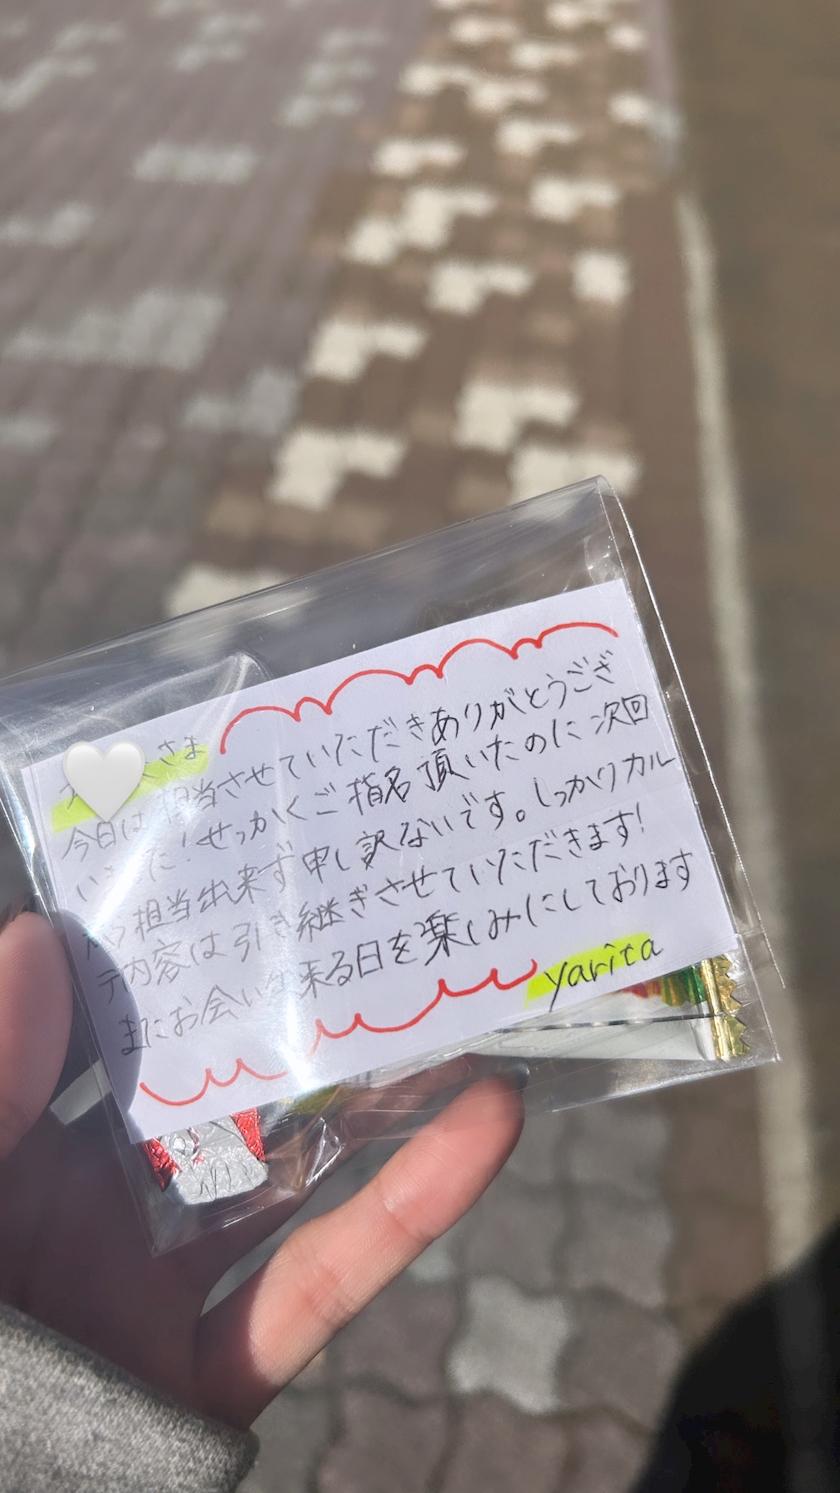 さま
今日は担当させていただきありがとうござ
いました!せっかくご指名頂いたのに次回
から担当出来ず申し訳ないです。しっかりカル
テ内容は引き継ぎさせていただきます!
またお会い出来る日を楽しみにしております
yarita